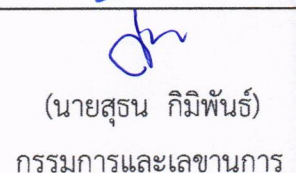 (นายสุธน กิมิพันธ์)
กรรมการและเลขานุการ